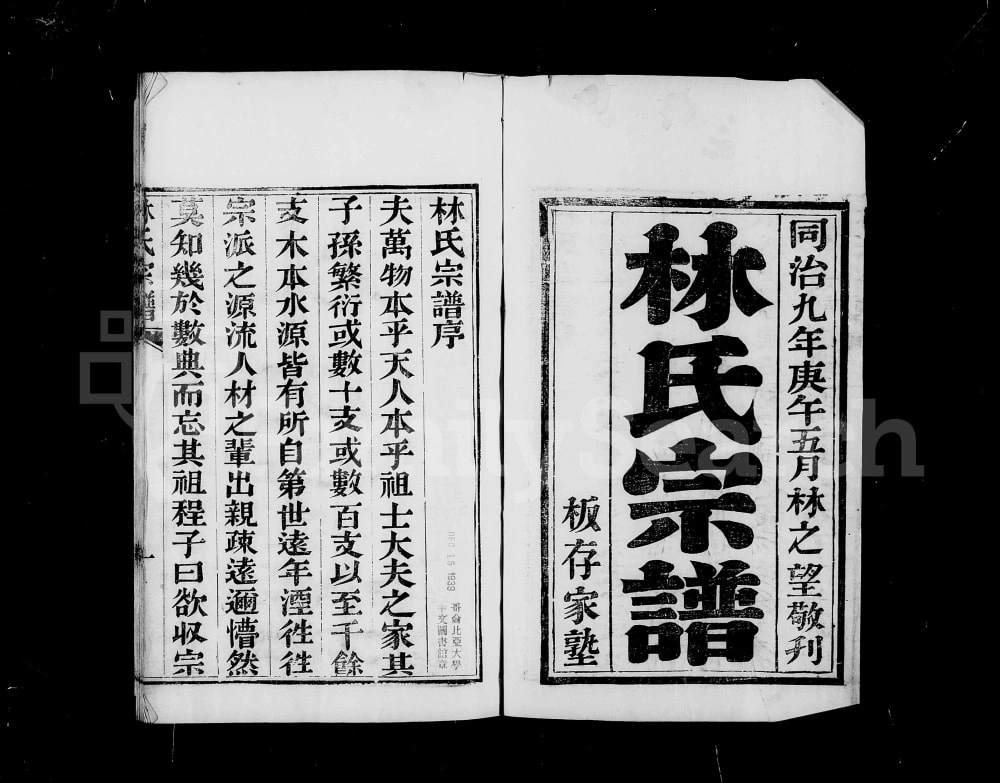 同治九年庚午五月林之望敬刋
林氏宗譜
板存家塾
林氏宗譜序
夫萬物本乎天人本乎祖士大夫之家其
子孫繁衍或數十支或數百支以至千餘
支木本水源皆有所自第世遠年湮徃徃
宗派之源流人材之輩出親疎遠邇懵然
莫知幾於數典而忘其祖程子曰欲收宗
林氏宗譜
一
DEC 15 1939
哥倫比亞大學
中文圖書館章
FamilySearch